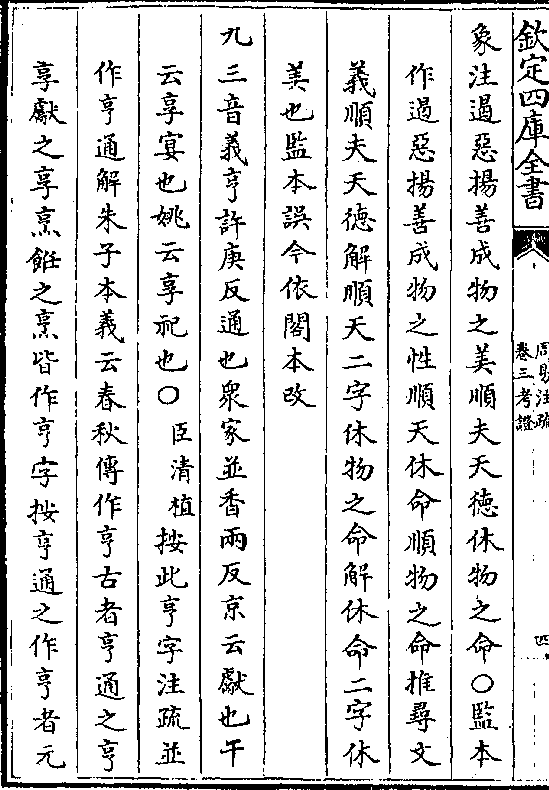 欽定四庫全書
周易注疏
卷三考證
四
象注遏惡揚善成物之美順夫天德休物之命〇監本
作遏惡揚善成物之性順天休命順物之命推尋文
義順夫天德解順天二字休物之命解休命二字休
美也監本誤今依閣本改
九三音義亨許庚反通也眾家並香兩反京云獻也干
云享宴也姚云享祀也〇臣清植按此亨字注疏並
作亨通解朱子本義云春秋傳作享古者亨通之亨
享獻之享烹飪之烹皆作亨字按亨通之作亨者元